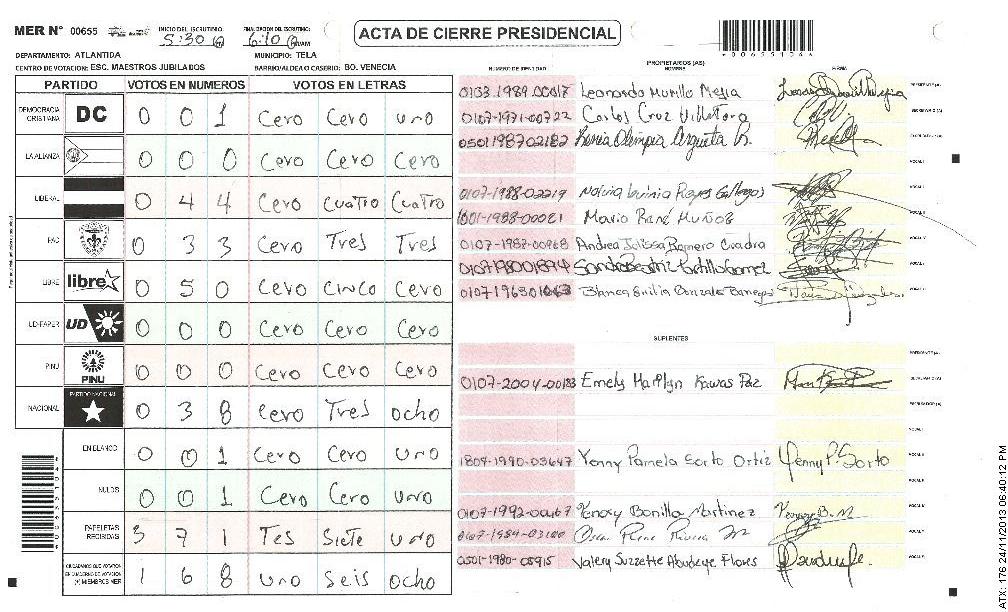 MER N° 00655
INICIO DEL ESCRUTINIO: 5:30
FINALIZACION DEL ESCRUTINIO: 6:10
ACTA DE CIERRE PRESIDENCIAL
DEPARTAMENTO: ATLANTIDA MUNICIPIO: TELA
CENTRO DE VOTACION: ESC. MAESTROS JUBILADOS BARRIO/ALDEA O CASERIO: BO. VENECIA
PARTIDO VOTOS EN NUMEROS VOTOS EN LETRAS
DEMOCRACIA CRISTIANA DC 0 0 1 Cero Cero uno
LA ALIANZA 0 0 0 Cero Cero Cero
LIBERAL 0 4 4 Cero Cuatro Cuatro
PAC 0 3 3 Cero Tres Tres
LIBRE libre 0 5 0 Cero CINCO Cero
UD-FAPER UD 0 0 0 Cero Cero Cero
PINU PINU 0 0 0 Cero Cero Cero
NACIONAL PARTIDO NACIONAL 0 3 8 Cero Tres ocho
EN BLANCO 0 0 1 Cero Cero uno
NULOS 0 0 1 Cero Cero uno
PAPELETAS RECIBIDAS 3 7 1 Tes Siete uno
CIUDADANOS QUE VOTARON EN CUADERNO DE VOTACION (+) MIEMBROS MER 1 6 8 uno Seis ocho
PROPIETARIOS (AS)
NUMERO DE IDENTIDAD NOMBRE FIRMA
0133-1989-00017 Leonardo Murillo Mejia PRESIDENTE (A)
0107-1971-00722 Carlos Cruz Villatora SECRETARIO (A)
0501198702182 Kenia Olimpia Argueta B. ESCRUTADOR (A)
VOCAL I
0107-1988-02219 Reyes Gallegos VOCAL II
1001-1988-00021 Mario René Muñoz VOCAL III
0107-1987-00968 Andrea Julissa Romero Cuadra VOCAL IV
0107198001894 Sandra Beatriz Portillo Gomez
0107196501063 Blanca Emilia Gonzales Banegas
SUPLENTES
PRESIDENTE (A)
0107-2004-00133 Emely Marilyn Kawas Paz SECRETARIO (A)
ESCRUTADOR (A)
VOCAL I
1804-1990-03647 Yenny Pamela Sorto Ortiz Yenny P. Sorto VOCAL II
0107-1992-00467 Kenory Bonilla Martinez Kenory B. M
0107-1984-03100 Oscar Rene Rivera
0501-1980-05915 Valery Suzzette Abudeye Flores
ATX: 176 24/11/2013 06:40:12 PM